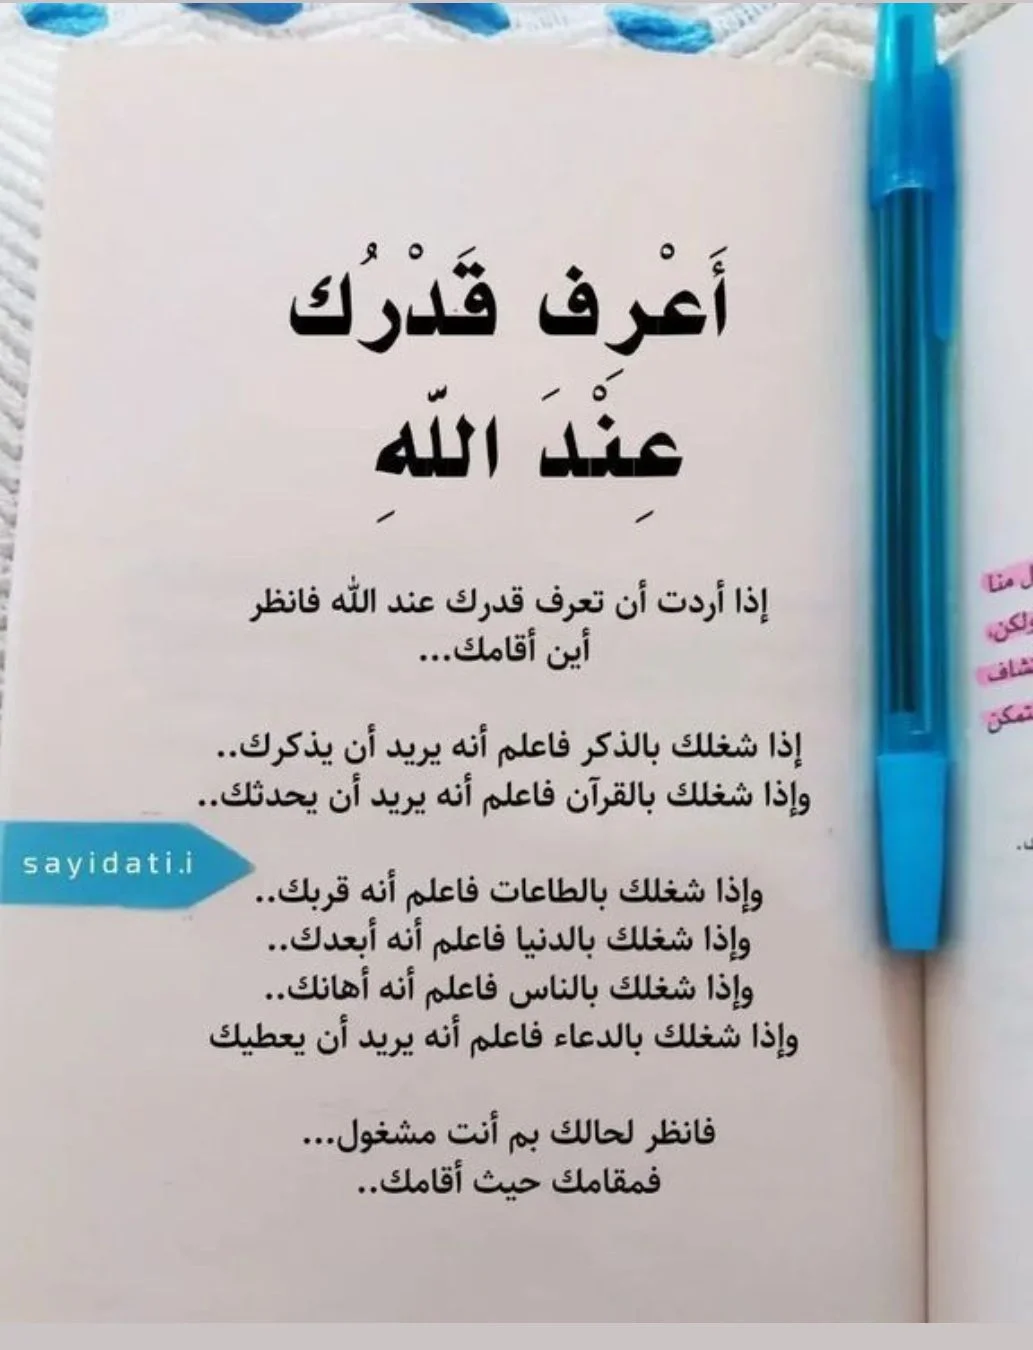 أَعْرِف قَدْرُك
عِنْدَ اللّهِ
إذا أردت أن تعرف قدرك عند الله فانظر
أين أقامك...
إذا شغلك بالذكر فاعلم أنه يريد أن يذكرك..
وإذا شغلك بالقرآن فاعلم أنه يريد أن يحدثك..
وإذا شغلك بالطاعات فاعلم أنه قربك..
وإذا شغلك بالدنيا فاعلم أنه أبعدك..
وإذا شغلك بالناس فاعلم أنه أهانك..
وإذا شغلك بالدعاء فاعلم أنه يريد أن يعطيك
فانظر لحالك بم أنت مشغول...
فمقامك حيث أقامك..
sayidati.i
منا
ولكن،